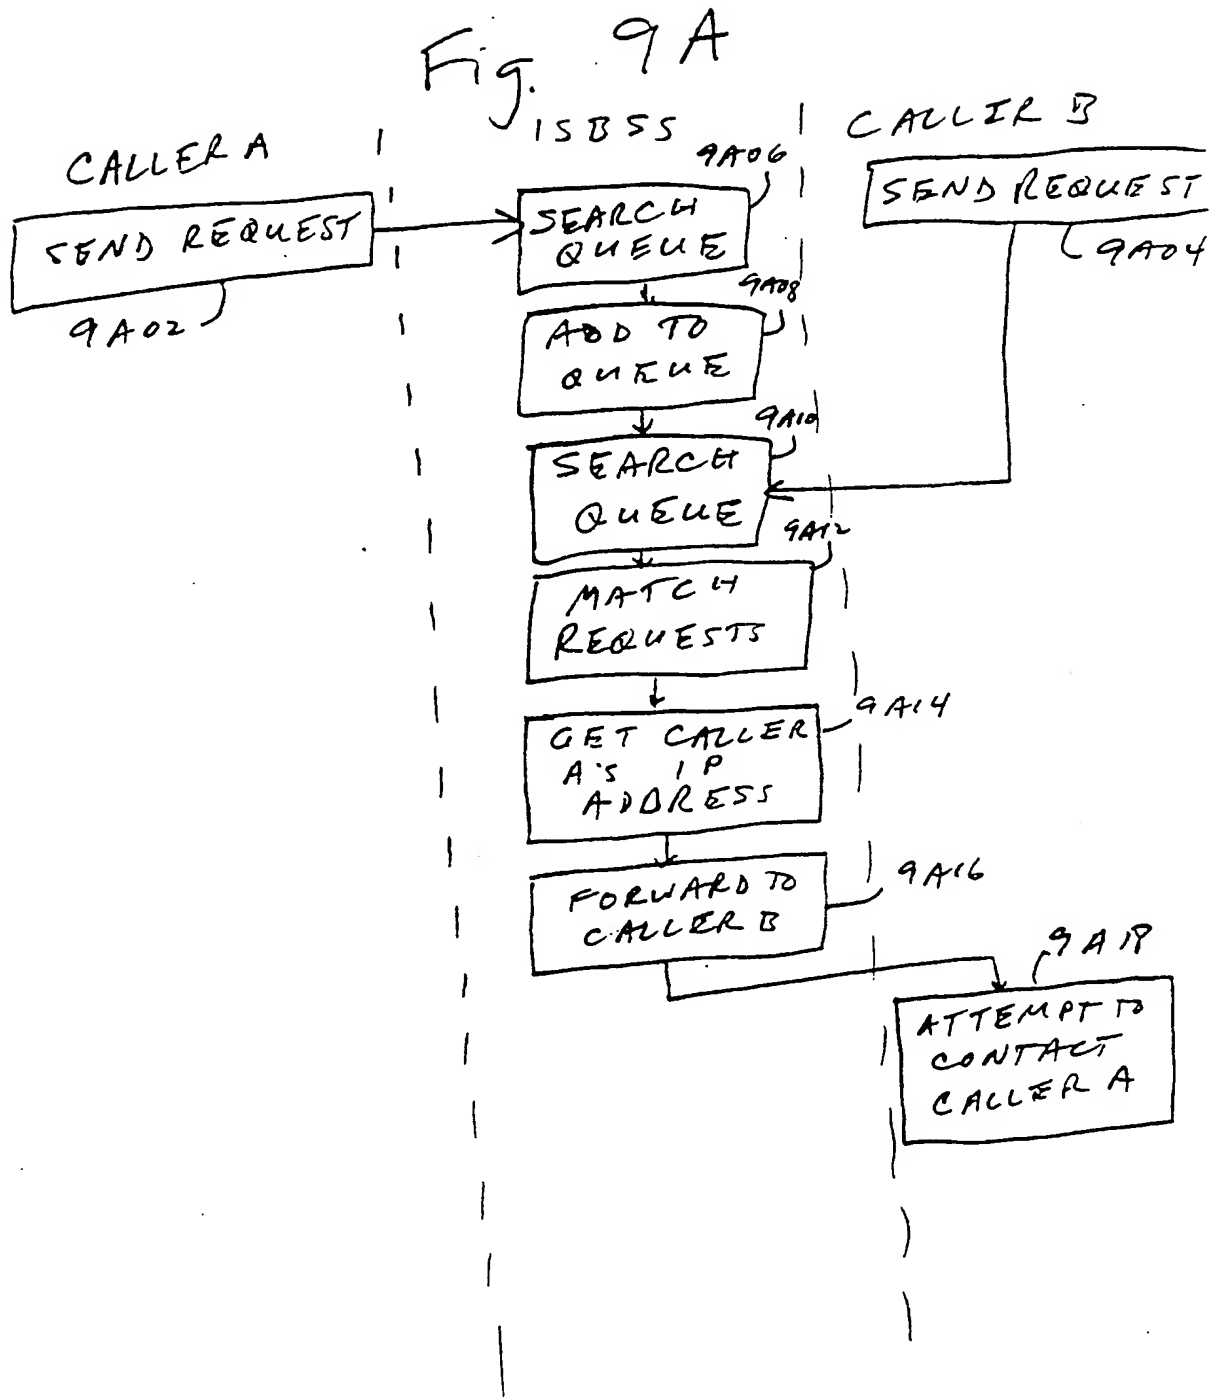 Fig. 9A
ISBSS
CALLER A
CALLER B
SEND REQUEST
9A02
SEARCH
QUEUE
9A06
SEND REQUEST
9A04
ADD TO
QUEUE
9A08
SEARCH
QUEUE
9A10
MATCH
REQUESTS
9A12
GET CALLER
A'S IP
ADDRESS
9A14
FORWARD TO
CALLER B
9A16
9A18
ATTEMPT TO
CONTACT
CALLER A